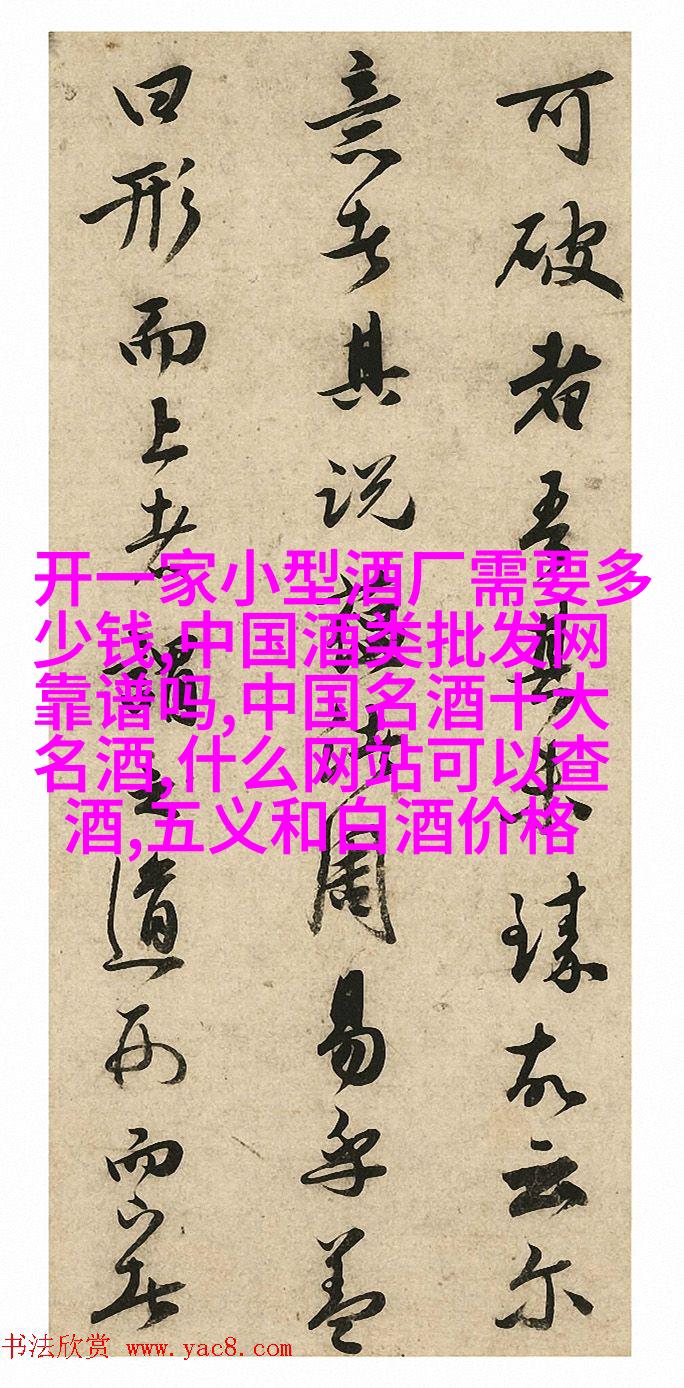 可破者吾未臻故云尔
意者其说周易乎盖
曰形而上者謂之道形而下者
开一家小型酒厂需要多
少钱,中国酒类批发网
靠谱吗,中国名酒十大
名酒,什么网站可以查
酒,五义和白酒价格
书法欣赏 www.yac8.com